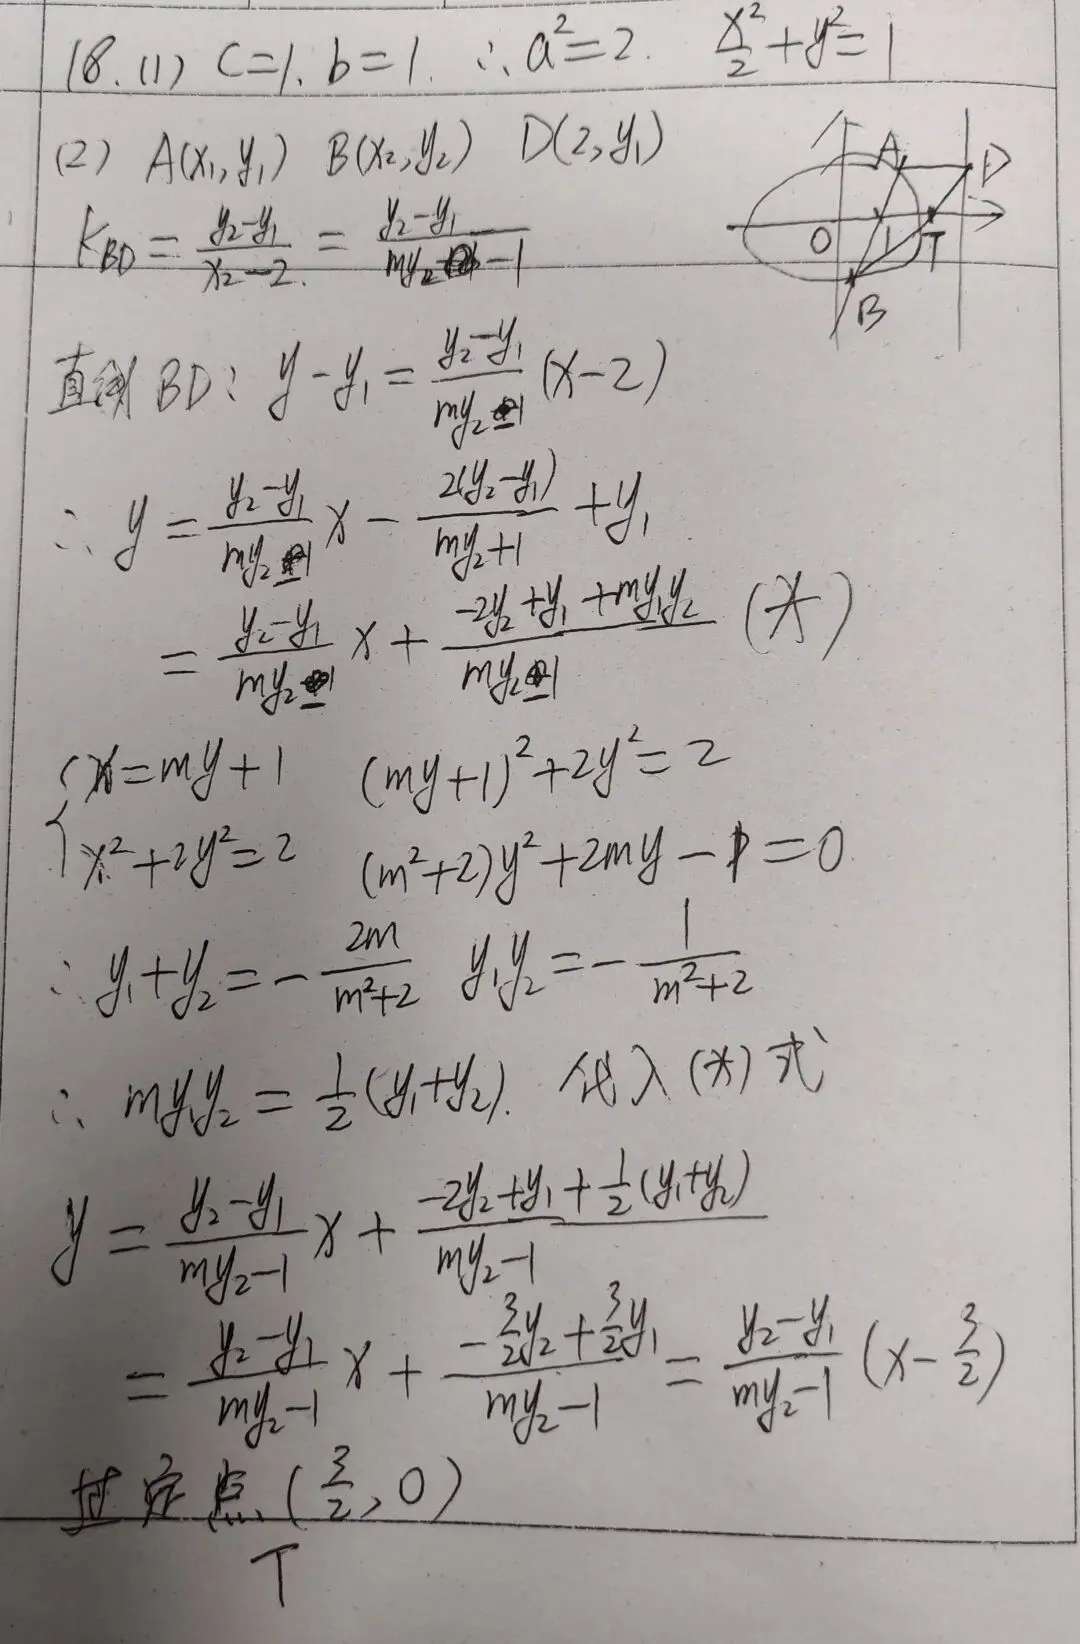 18. (1) C=1, b=1. ∴ a²=2. x²/2+y²=1
(2) A(x₁,y₁) B(x₂,y₂) D(2,y₁)
A D
O 1 T
B
K_BD = (y₂-y₁)/(x₂-2) = (y₂-y₁)/(my₂-1)
直线BD: y-y₁ = (y₂-y₁)/(my₂-1) (x-2)
∴ y = (y₂-y₁)/(my₂-1) x - 2(y₂-y₁)/(my₂+1) + y₁
= (y₂-y₁)/(my₂-1) x + (-2y₂+y₁+my₁y₂)/(my₂-1) (*)
{ x=my+1 (my+1)²+2y²=2
x²+2y²=2 (m²+2)y²+2my-1=0
∴ y₁+y₂ = -2m/(m²+2) y₁y₂ = -1/(m²+2)
∴ my₁y₂ = ½(y₁+y₂). 代入(*)式
y = (y₂-y₁)/(my₂-1) x + (-2y₂+y₁+½(y₁+y₂))/(my₂-1)
= (y₂-y₁)/(my₂-1) x + (-3/2y₂+3/2y₁)/(my₂-1) = (y₂-y₁)/(my₂-1) (x-3/2)
过定点(3/2,0)
T